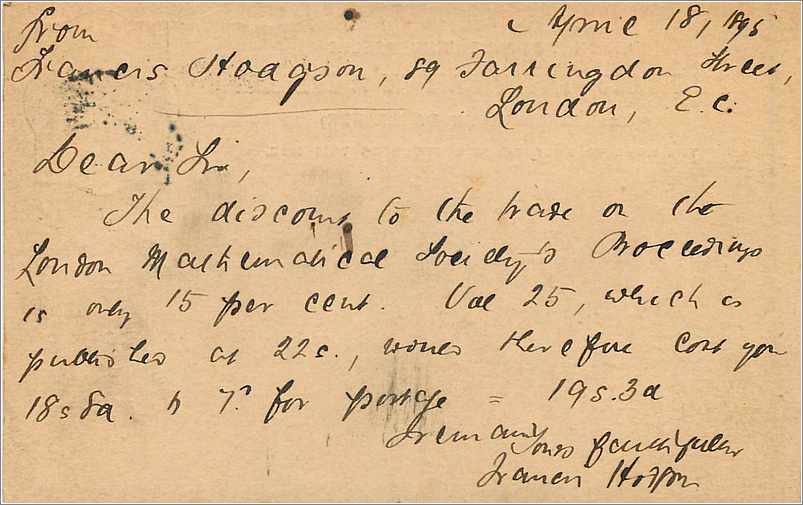 From April 18, 1895
Francis Hodgson, 89 Farringdon Street,
London, E.C.
Dear Sir,
The discount to the trade on the
London Mathematical Society's Proceedings
is only 15 per cent. Vol 25, which is
published at 22s., would therefore cost you
18s 8d. + 7d for postage = 19s. 3d
I remain
Yours faithfully
Francis Hodgson